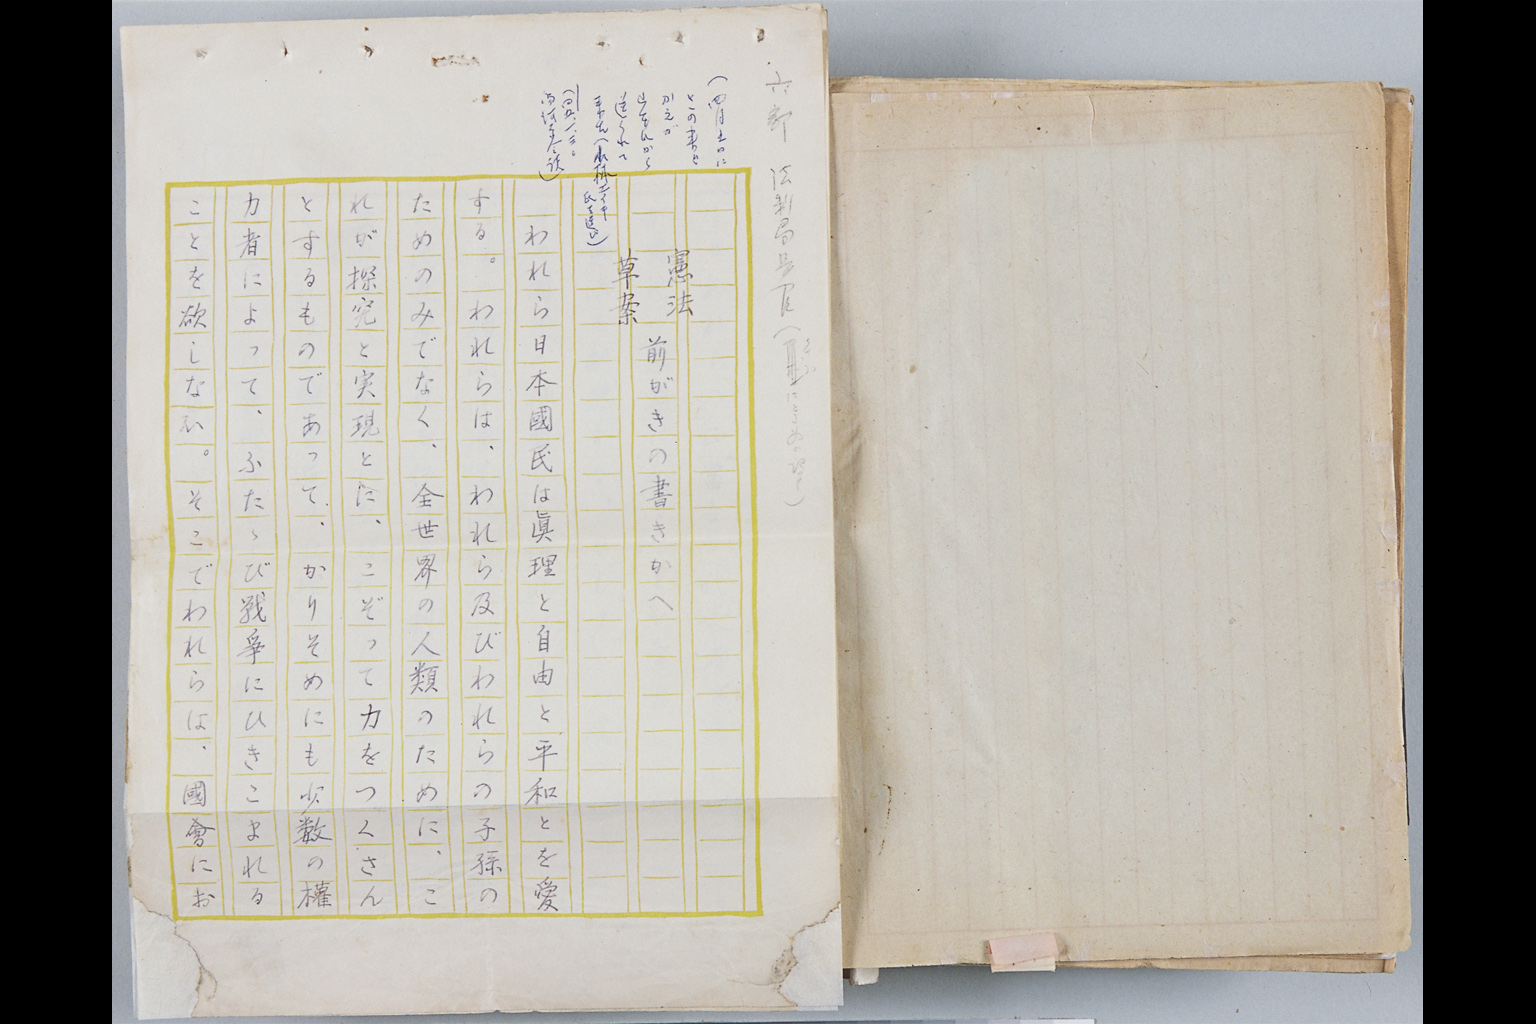 六部 法制局長官(
(四月五日に
この書き
かえが
送られて
憲法
草案
前がきの書きかへ
われら日本國民は眞理と自由と平和とを愛
する。われらは、われら及びわれらの子孫の
ためのみでなく、全世界の人類のために、こ
れが探究と実現とに、こぞって力をつくさん
とするものであって、かりそめにも少数の權
力者によって、ふたゝび戦爭にひきこまれる
ことを欲しない。そこでわれらは、國會にお